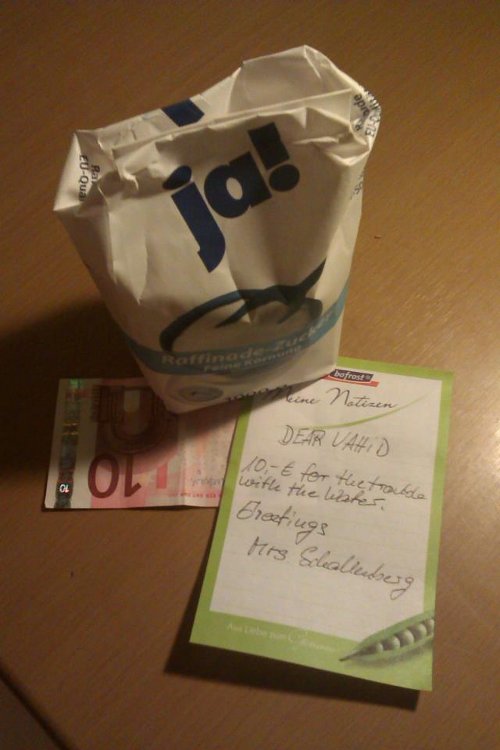 ja!
Raffinade-Zucker
Feine Körnung
1000
10
10
bofrost*
Meine Notizen
DEAR VAHID
10,- € for the trouble
with the water.
Greetings
Mrs Schallenberg
Aus Liebe zum